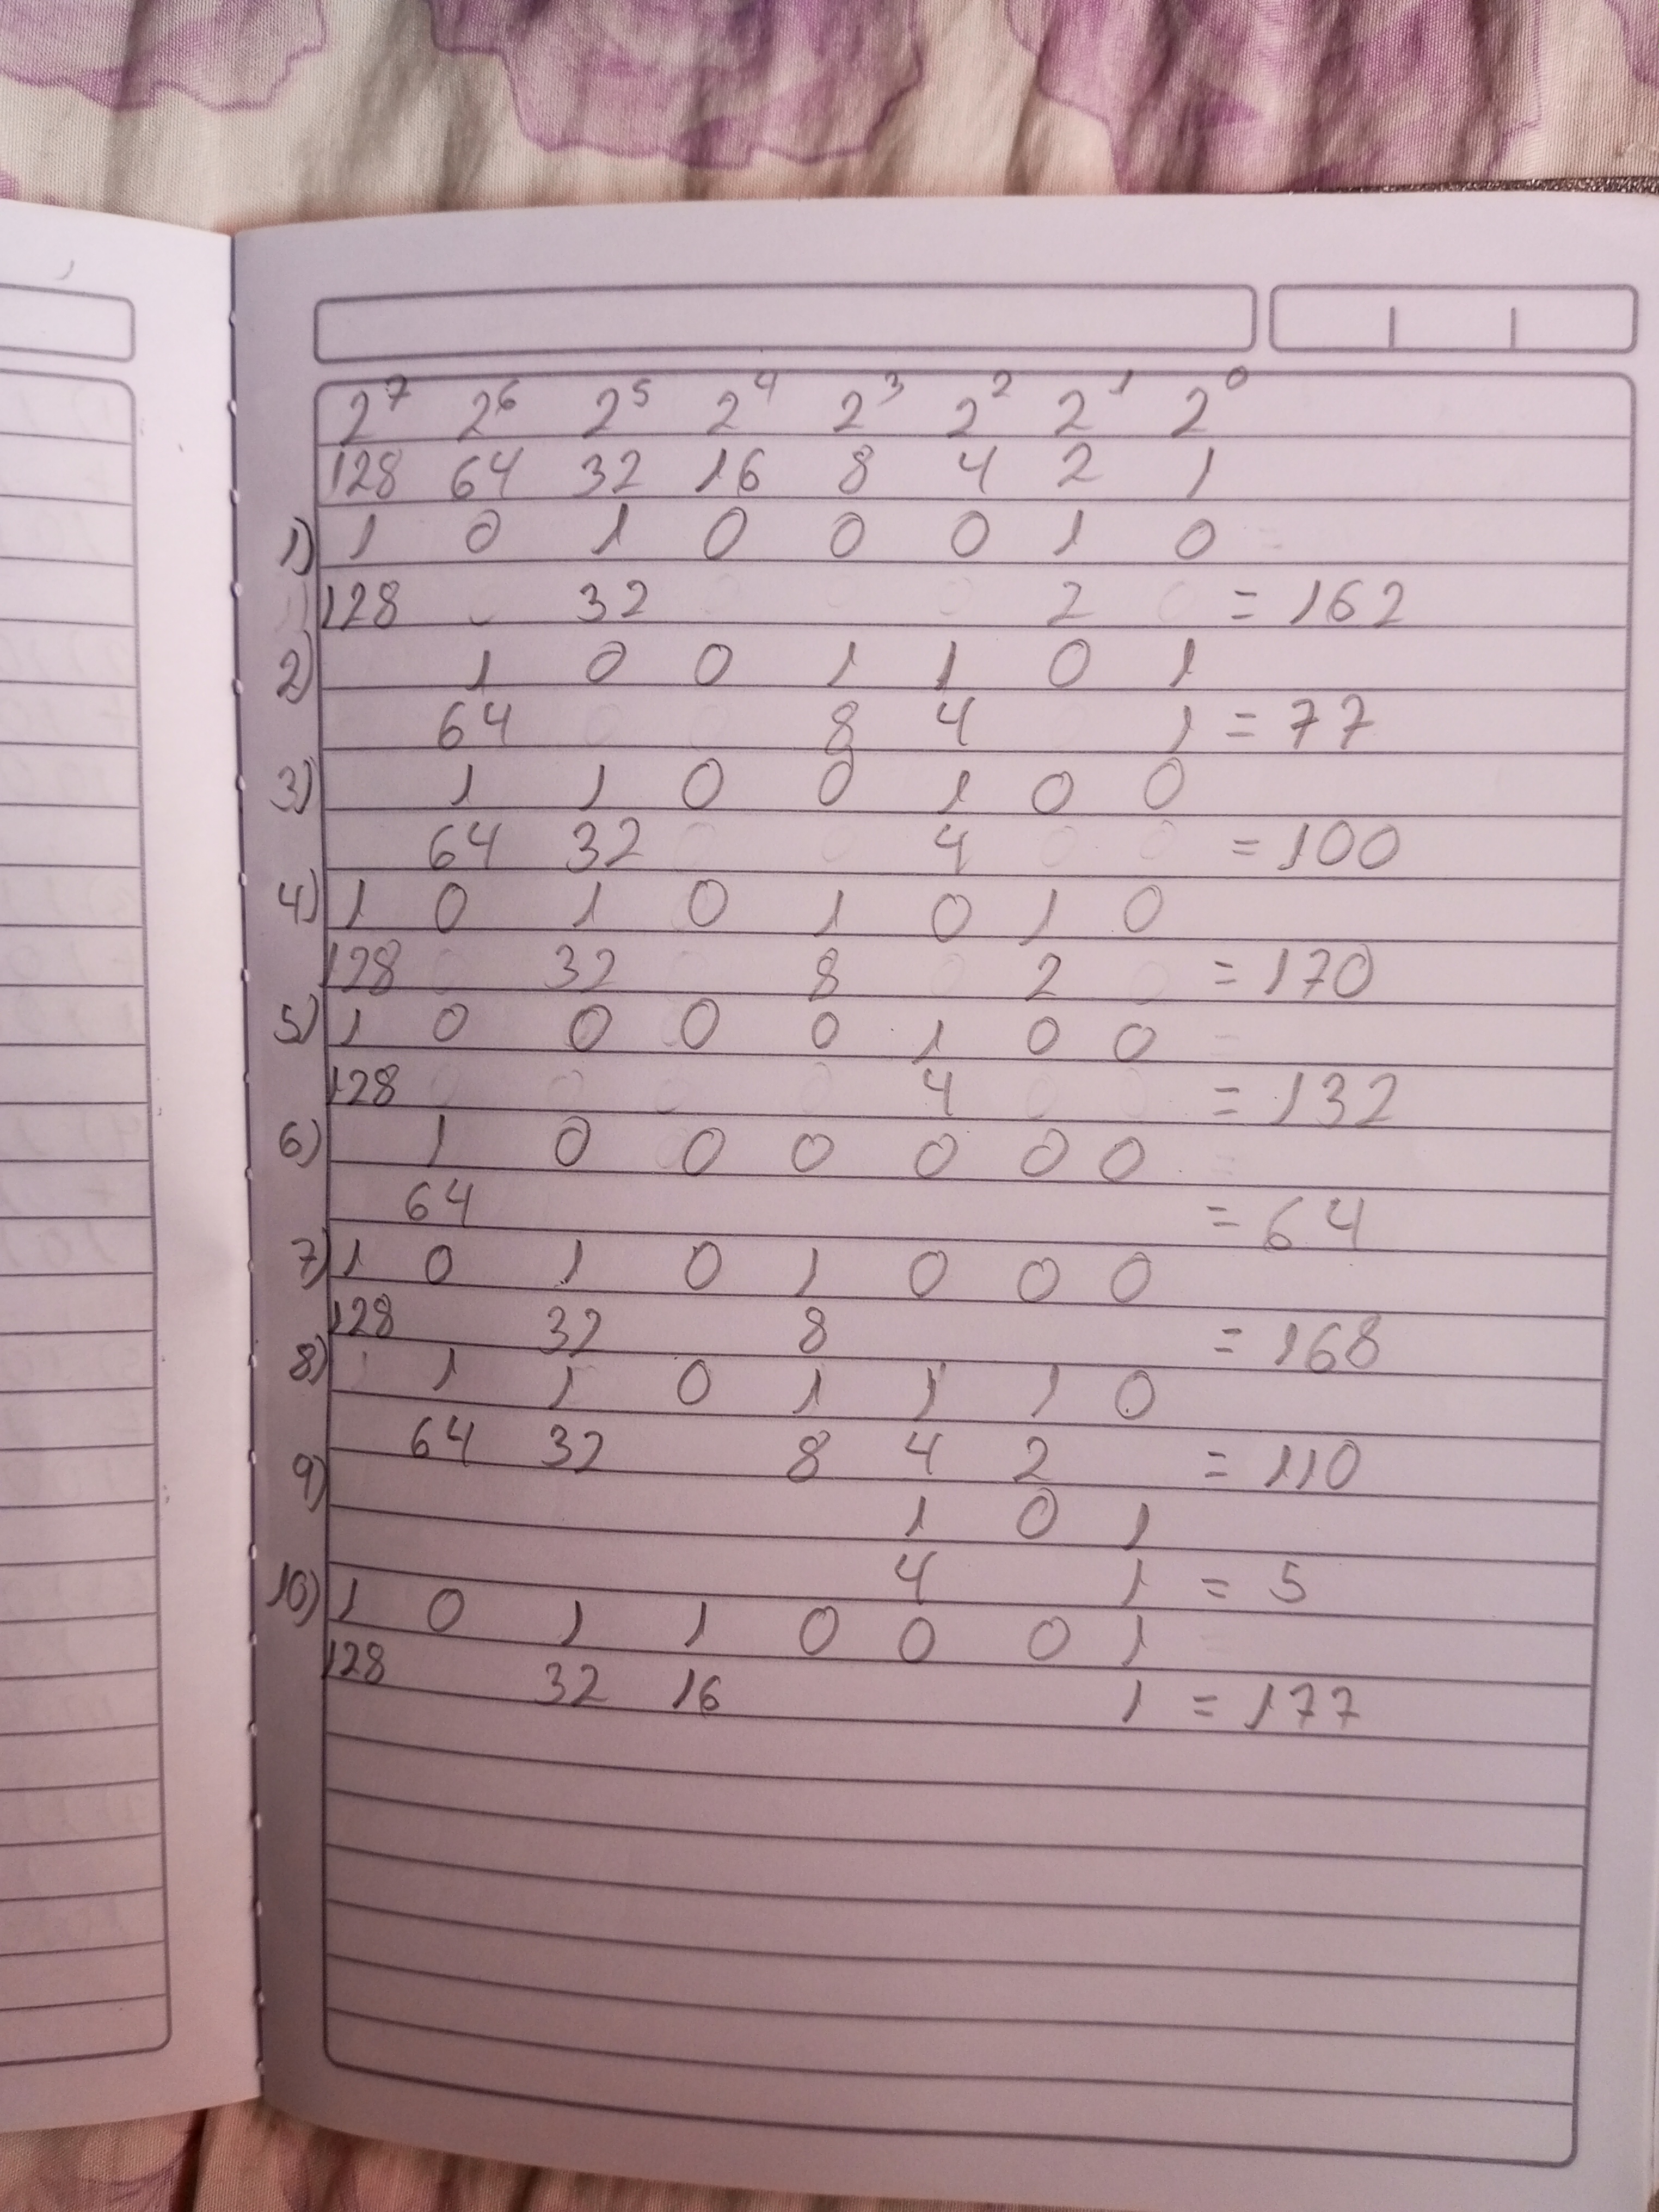 2⁷ 2⁶ 2⁵ 2⁴ 2³ 2² 2¹ 2⁰
128 64 32 16 8 4 2 1
1) 1 0 1 0 0 0 1 0
128 32 2 = 162
2) 1 0 0 1 1 0 1
64 8 4 1 = 77
3) 1 1 0 0 1 0 0
64 32 4 = 100
4) 1 0 1 0 1 0 1 0
128 32 8 2 = 170
5) 1 0 0 0 0 1 0 0
128 4 = 132
6) 1 0 0 0 0 0 0
64 = 64
7) 1 0 1 0 1 0 0 0
128 32 8 = 168
8) 1 1 0 1 1 1 0
64 32 8 4 2 = 110
9) 1 0 1
4 1 = 5
10) 1 0 1 1 0 0 0 1
128 32 16 1 = 177